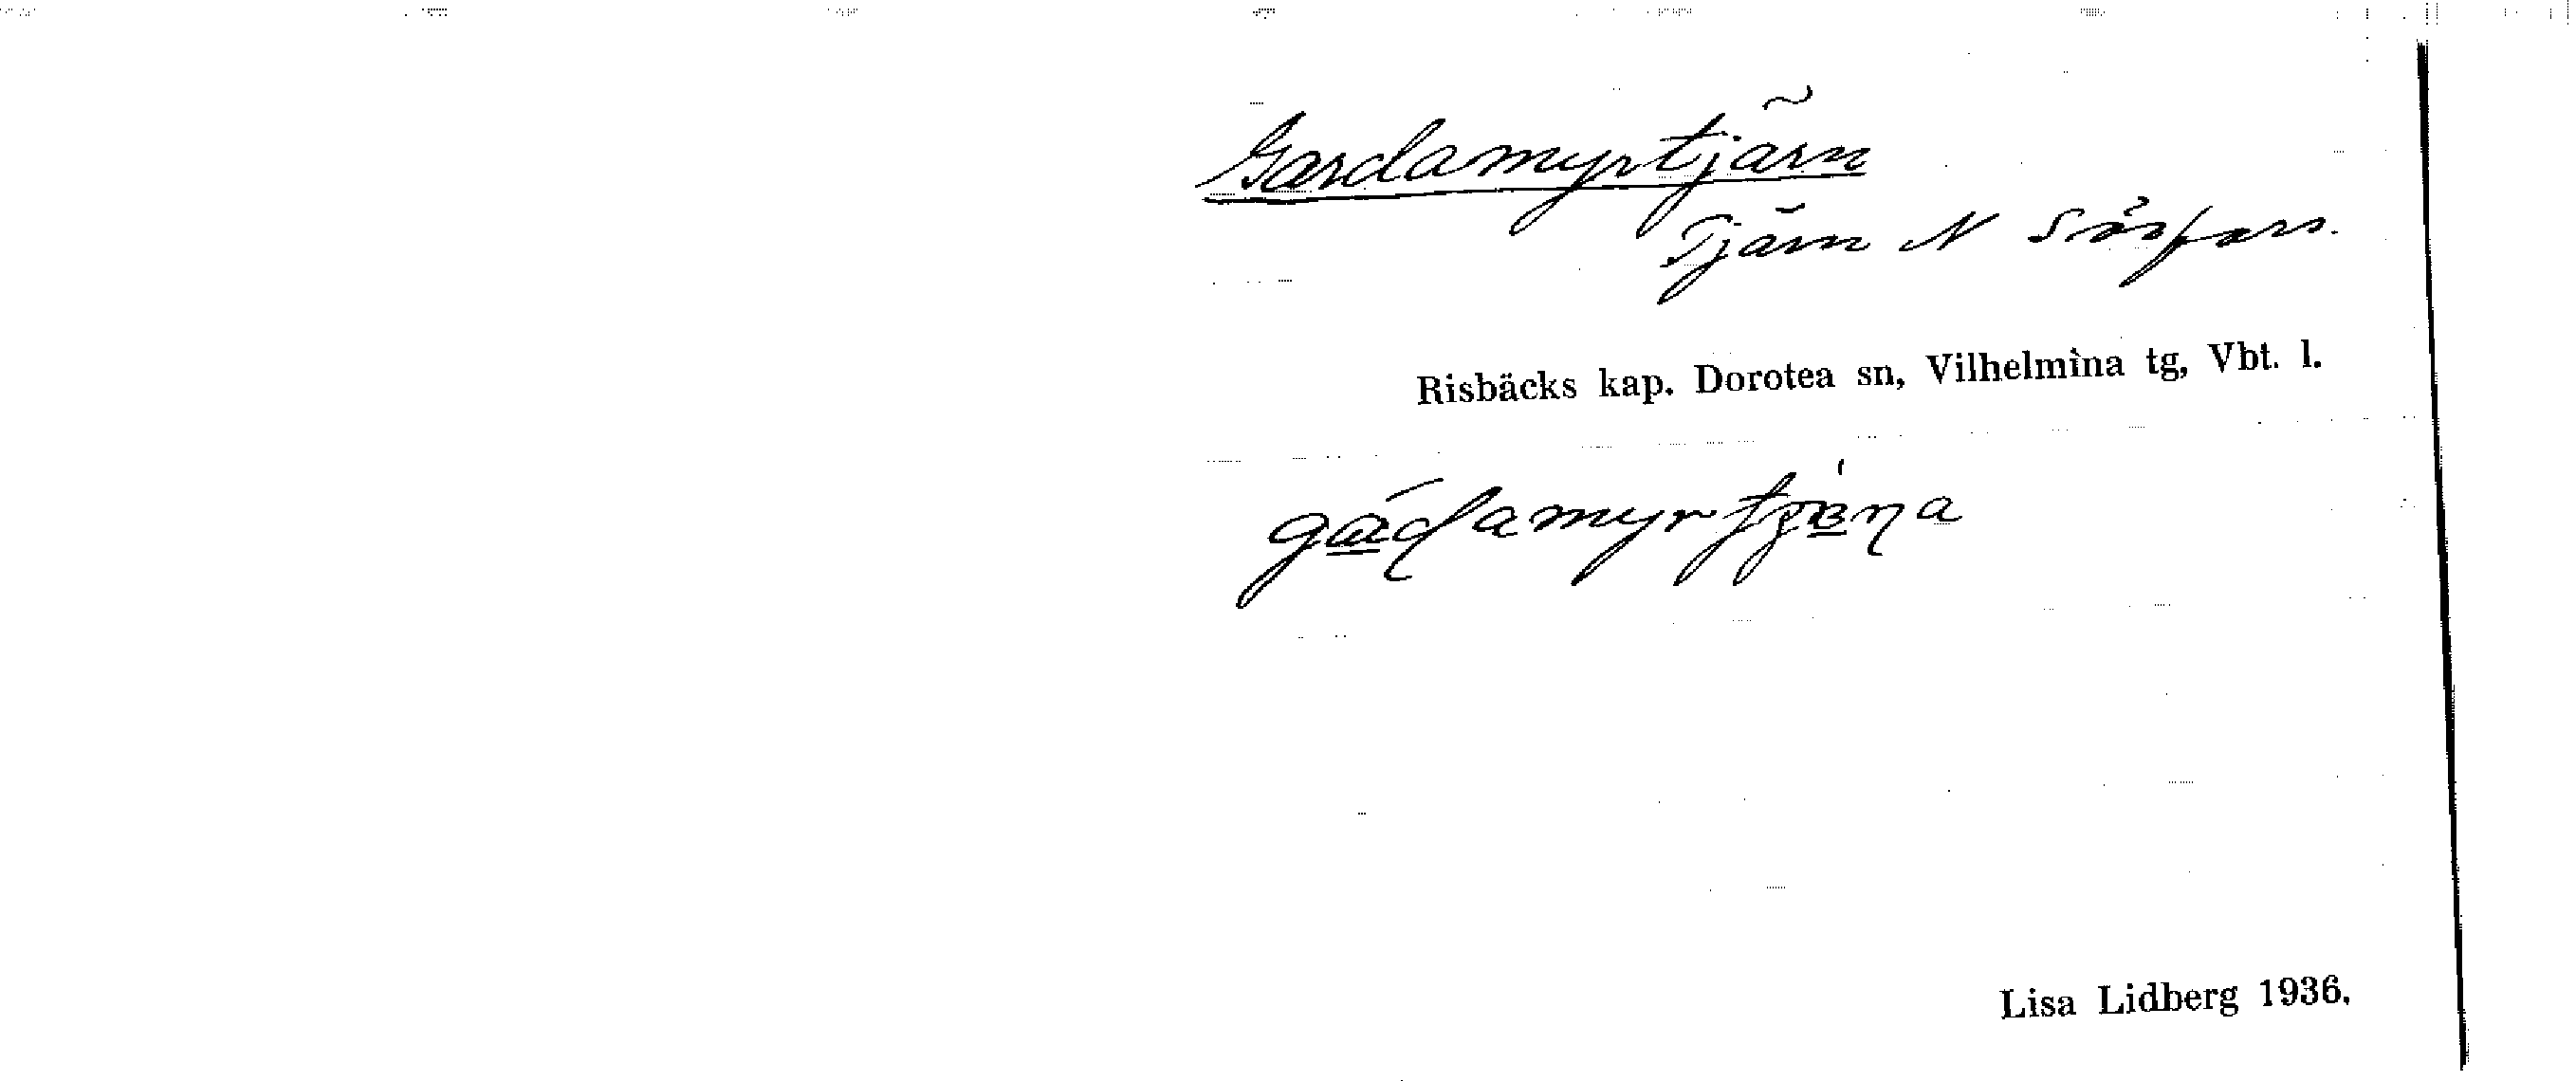 Gardamyrtjärn ~
Tjärn N Sörfors.
Risbäcks kap. Dorotea sn, Vilhelmina tg, Vbt. l.
Lisa Lidberg 1936.